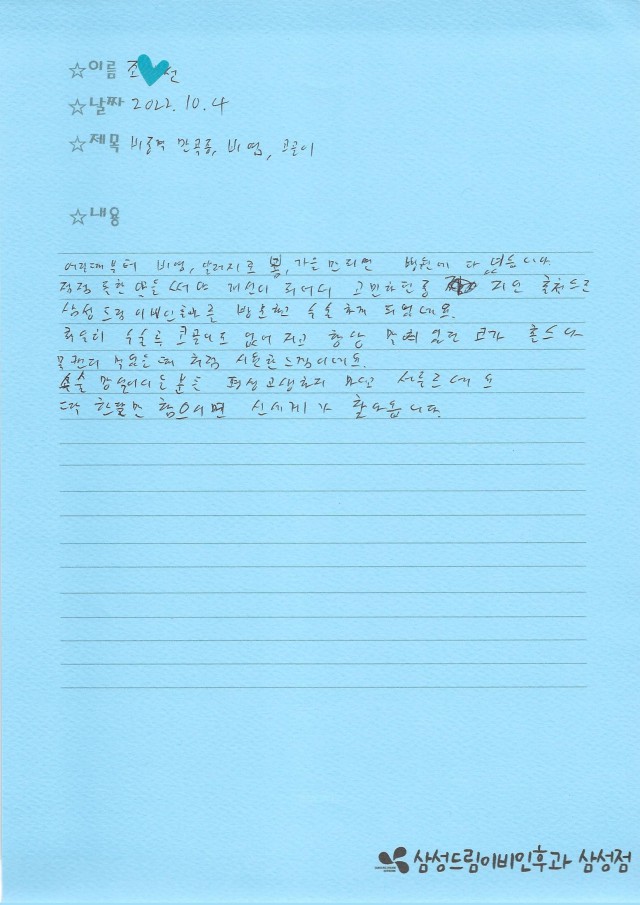 ☆이름 조 선
☆날짜 2022. 10. 4
☆제목 비중격 만곡증, 비염, 코골이
☆내용
어릴때부터 비염, 알러지로 봄, 가을만 되면 병원에 다녔습니다.
독한 약을 써야 개선이 되어서 고민하던중 지인 추천으로
삼성드림이비인후과를 방문하고 수술하게 되었네요.
수술후 코골이도 없어지고 항상 막혀있던 코가
목캔디 먹었을때 처럼 시원한 느낌이네요.
수술 망설이시는분들 평생고생하지 마시고 서두르세요
딱 한달만 참으시면 신세계가 찾아옵니다.
삼성드림이비인후과 삼성점